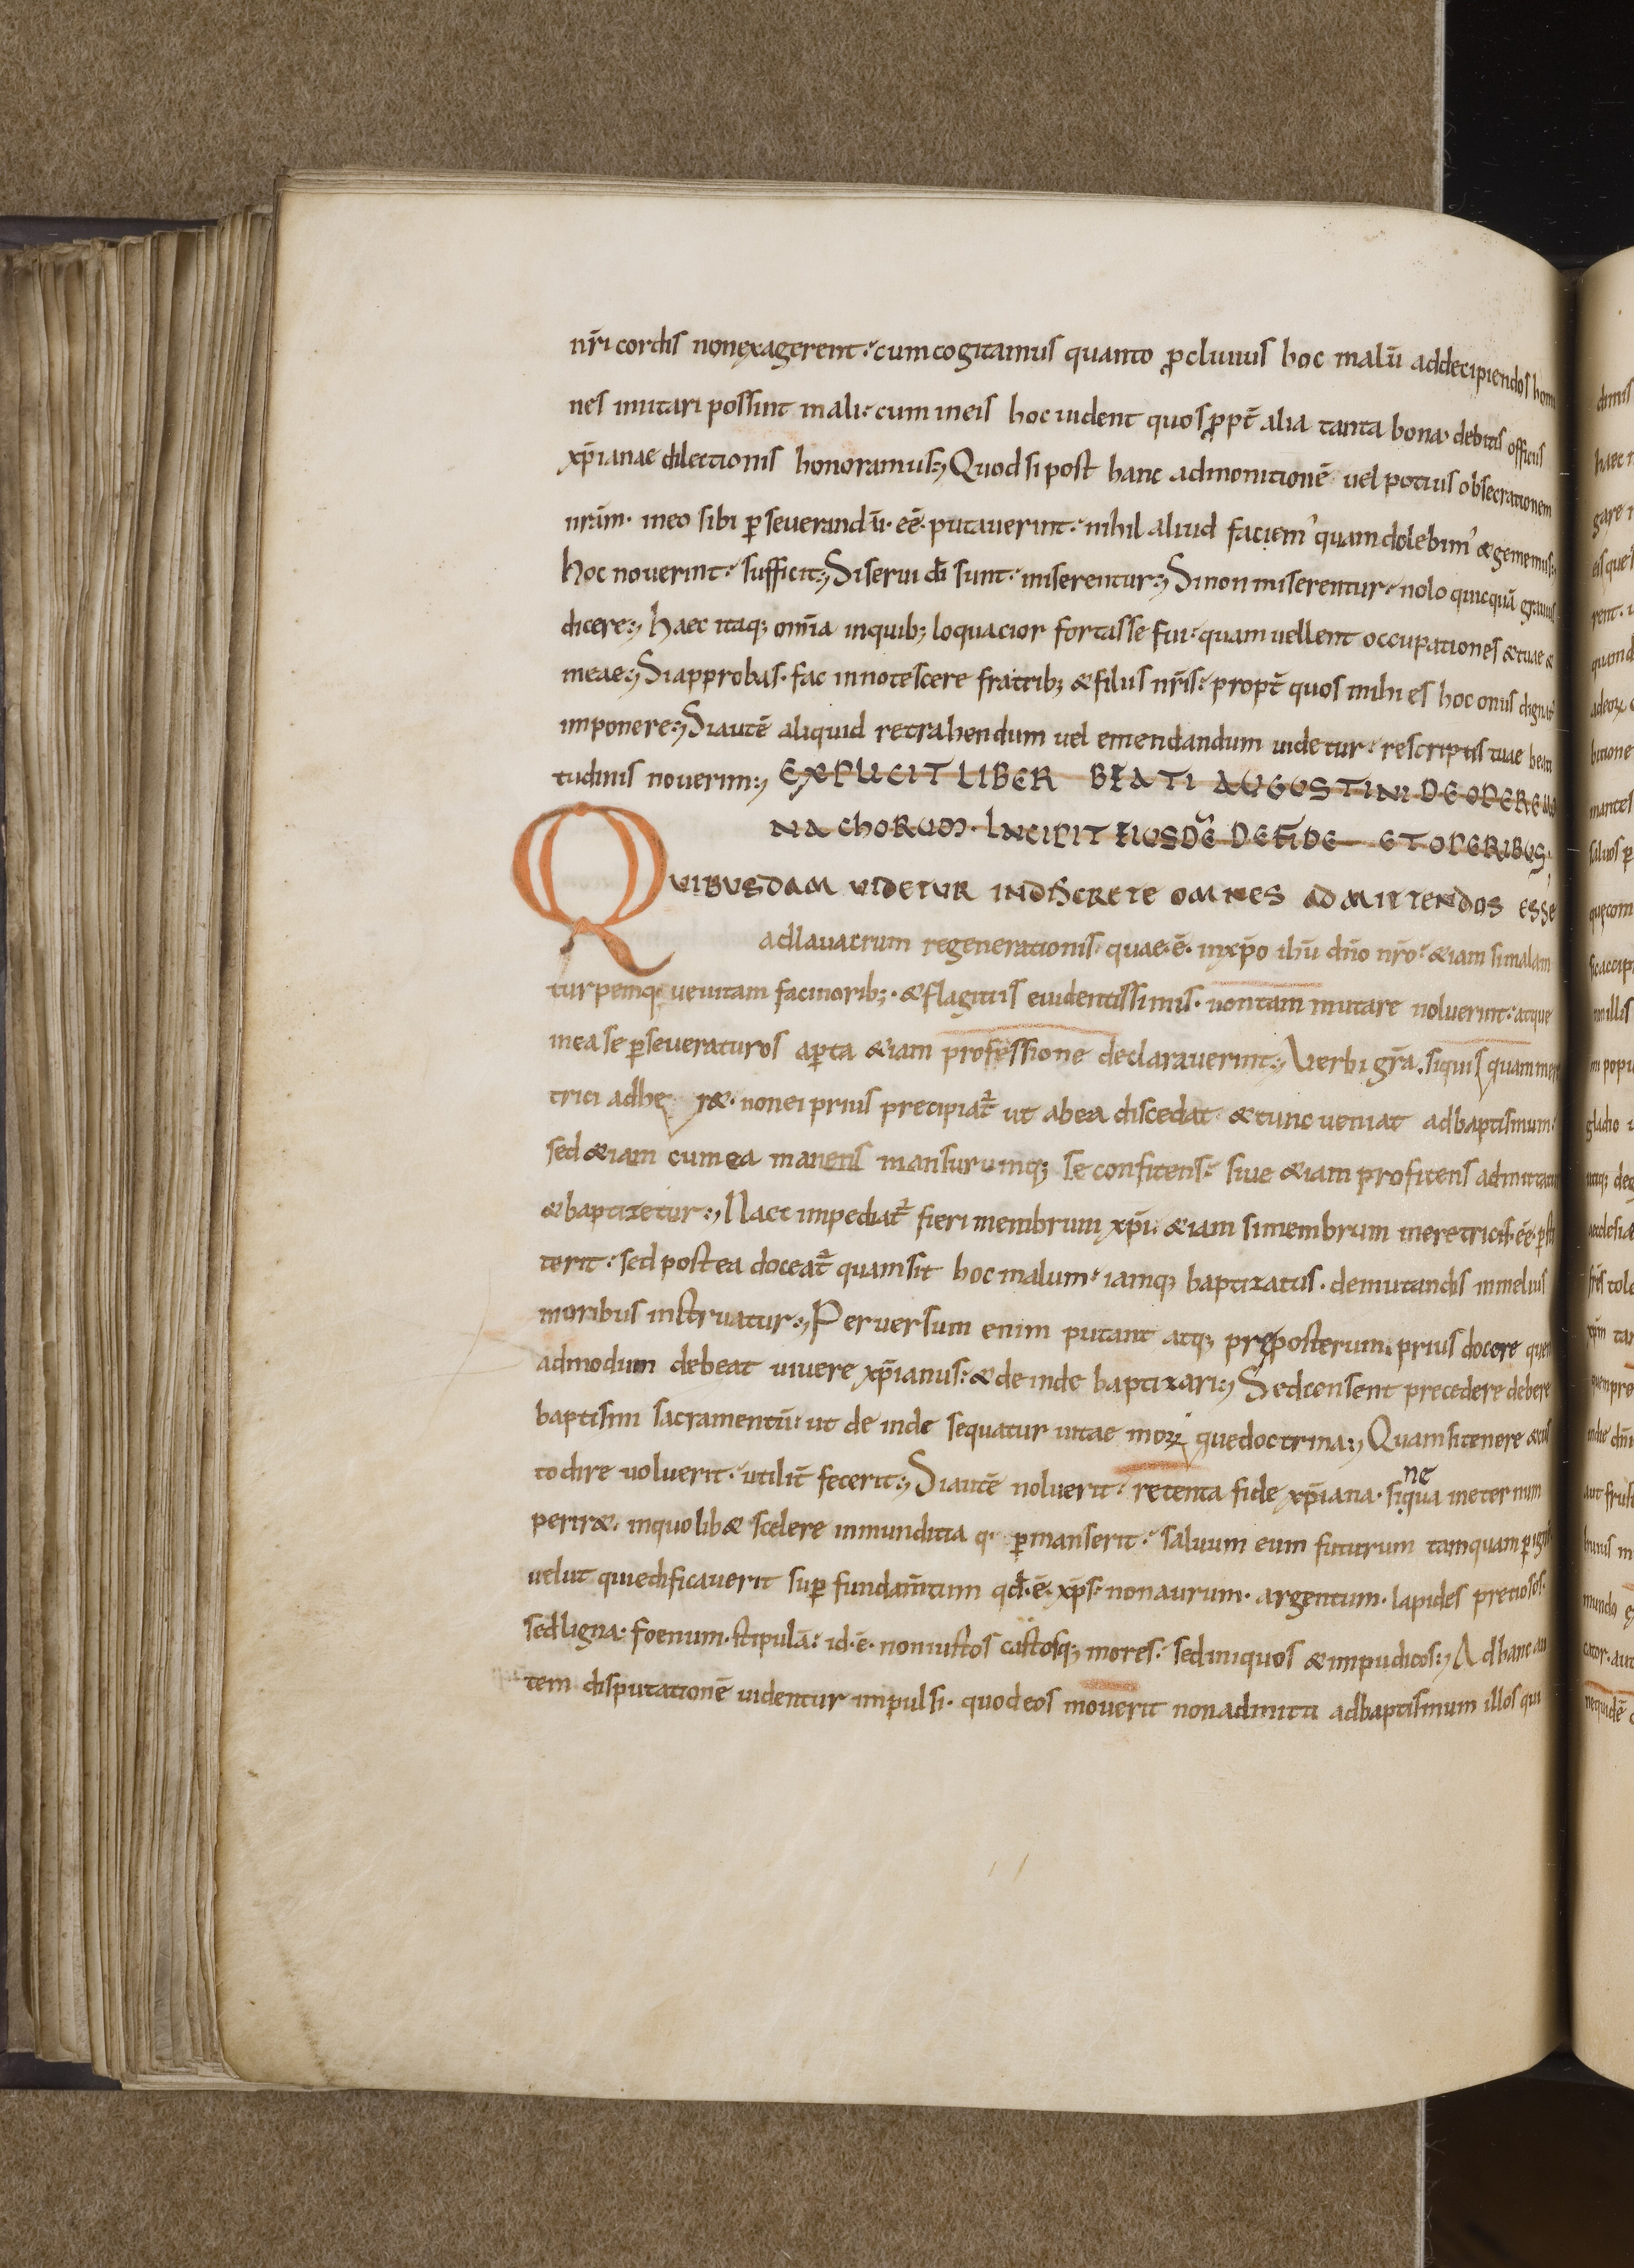 nr̄i cordis non exagerent· cum cogitamus quanto ꝓcliuius hoc malū ad decipiendos homi
nes imitari possint mali· cum in eis hoc uident quos ꝓpt̄ alia tanta bona debitis officiis
xp̄ianae dilectionis honoramus; Quod si post hanc admonitionē uel potius obsecrationem
nr̄am· in eo sibi ꝑseuerandū· eē· putauerint· nihil aliud faciem᾽ quam dolebim᾽ & gememus;
hoc nouerint· sufficit; Si serui dī sunt· miserentur; Si non miserentur· nolo quicquā grauius
dicere; haec itaq; om̄ia in quib; loquacior fortasse fui· quam uellent occupationes & tuae &
meae; Si approbas· fac innotescere fratrib; & filiis nr̄is· propt̄ quos mihi es hoc onus dignat᾽
imponere; Si autē aliquid retrahendum uel emendandum uidetur· rescriptis tuae beati
tudinis nouerim; EXPLICIT LIBER BEATI AUGUSTINI DE OPERE MO
NACHORUM· INCIPIT EIUSDĒ DE FIDE ET OPERIBUS·
QUIBUSDAM UIDETUR INDISCRETE OMNES ADMITTENDOS ESSE
ad lauacrum regenerationis quae· ē· in xp̄o ihū dn̄o nr̄o· & iam si malam
turpemq; uenitam facinorib;· & flagitiis euidentissimis· non tam mutare noluerint· atque
in ea se ꝑseueraturos aꝑta & iam professione declarauerint; Verbi gr̄a· si quisquam mere
trici adhe r&· non ei prius precipiat᾽ ut ab ea discedat· & tunc ueniat ad baptismum·
sed & iam cum ea manens mansurumq; se confitens· siue & iam profitens admittatur
& baptizetur; Nace impediat᾽ fieri membrum xp̄i· & iam si membrum meretricis· eē· ꝑsti
terit· sed postea doceat᾽ quam sit hoc malum· iamq; baptizatus· de mutandis in melius
moribus instruatur; Peruersum enim putant atq; pręposterum· prius docere quem
admodum debeat uiuere xp̄ianus· & de inde baptizari; Sed censent precedere debere
baptismi sacramentū· ut de inde sequatur uitae morꝝ que doctrina; Quam si tenere & cus
todire uoluerit· utilit̄ fecerit; Si autē noluerit· retenta fide xp̄iana· si ne qua in eternum
perir&· in quo lib& scelere inmunditia q· ꝑmanserit· saluum eum futurum tamquam ꝑ ignē
uelut qui edificauerit suꝑ fundam̄tum qđ· ē· xp̄s· non aurum· argentum· lapides pretiosos·
sed ligna· foenum· stipulā· id· ē· non iustos castosq; mores· sed iniquos & impudicos; Ad hanc au
tem disputationē uidentur impulsi· quod eos mouerit non admitti ad baptismum illos qui